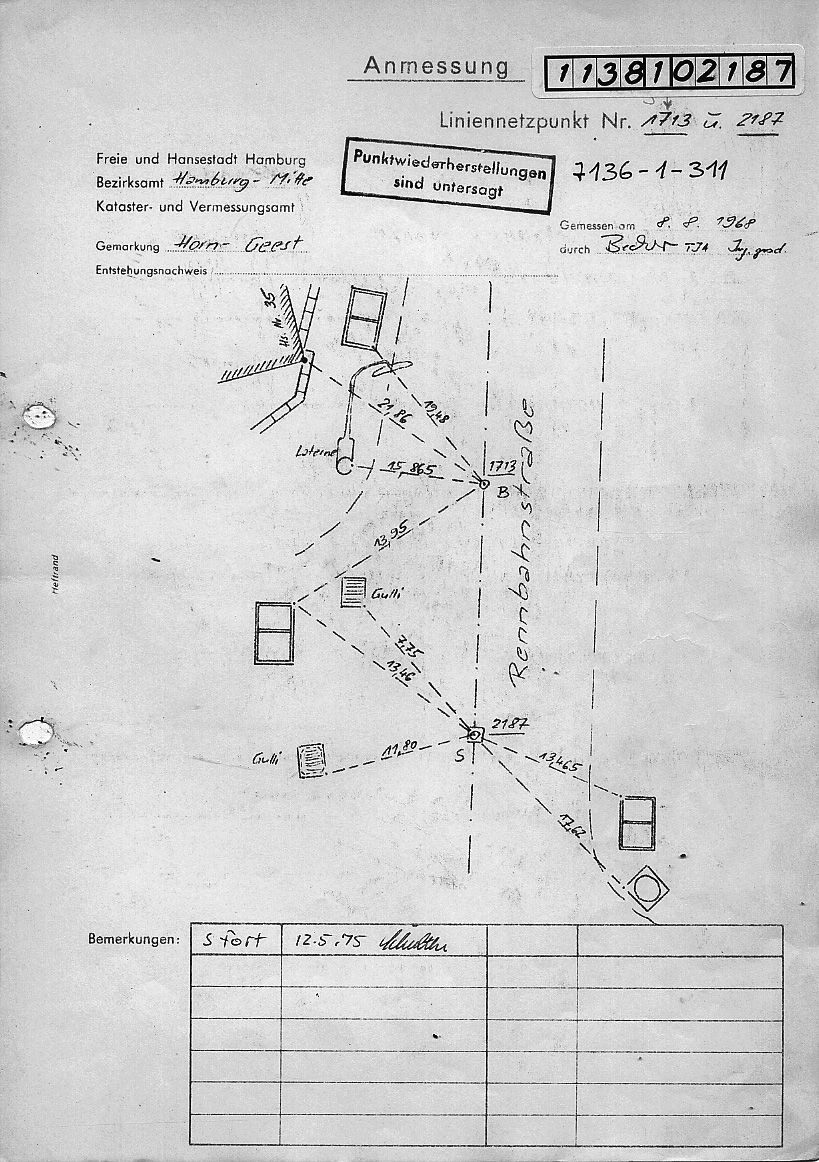 Anmessung
1138102187
Liniennetzpunkt Nr. 1713 u. 2187
Freie und Hansestadt Hamburg
Bezirksamt Hamburg-Mitte
Kataster- und Vermessungsamt
Punktwiederherstellungen
sind untersagt
7136-1-311
Gemessen am 8. 8. 1968
durch Becker TJA Ing. grad.
Gemarkung Horn- Geest
Entstehungsnachweis
Hs. Nr. 35
21,86
19,48
Laterne
15,865
1713
B
Rennbahnstraße
13,95
Heftrand
Gulli
7,75
13,46
2187
S
Gulli
11,80
13,465
17,62
Bemerkungen:
S fort
12.5.75